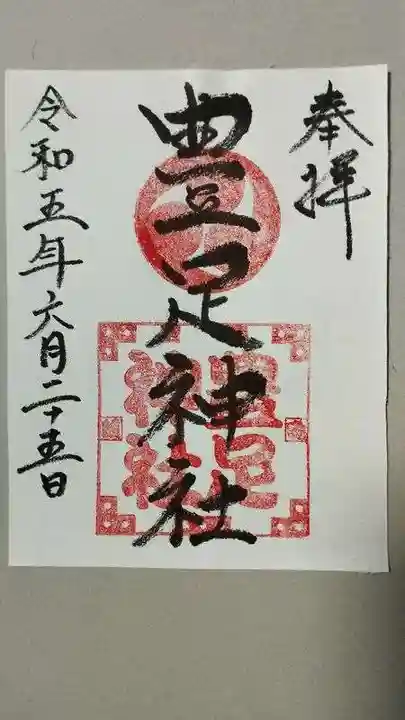 奉拝
豊足神社
令和五年六月二十五日
豊足
神社